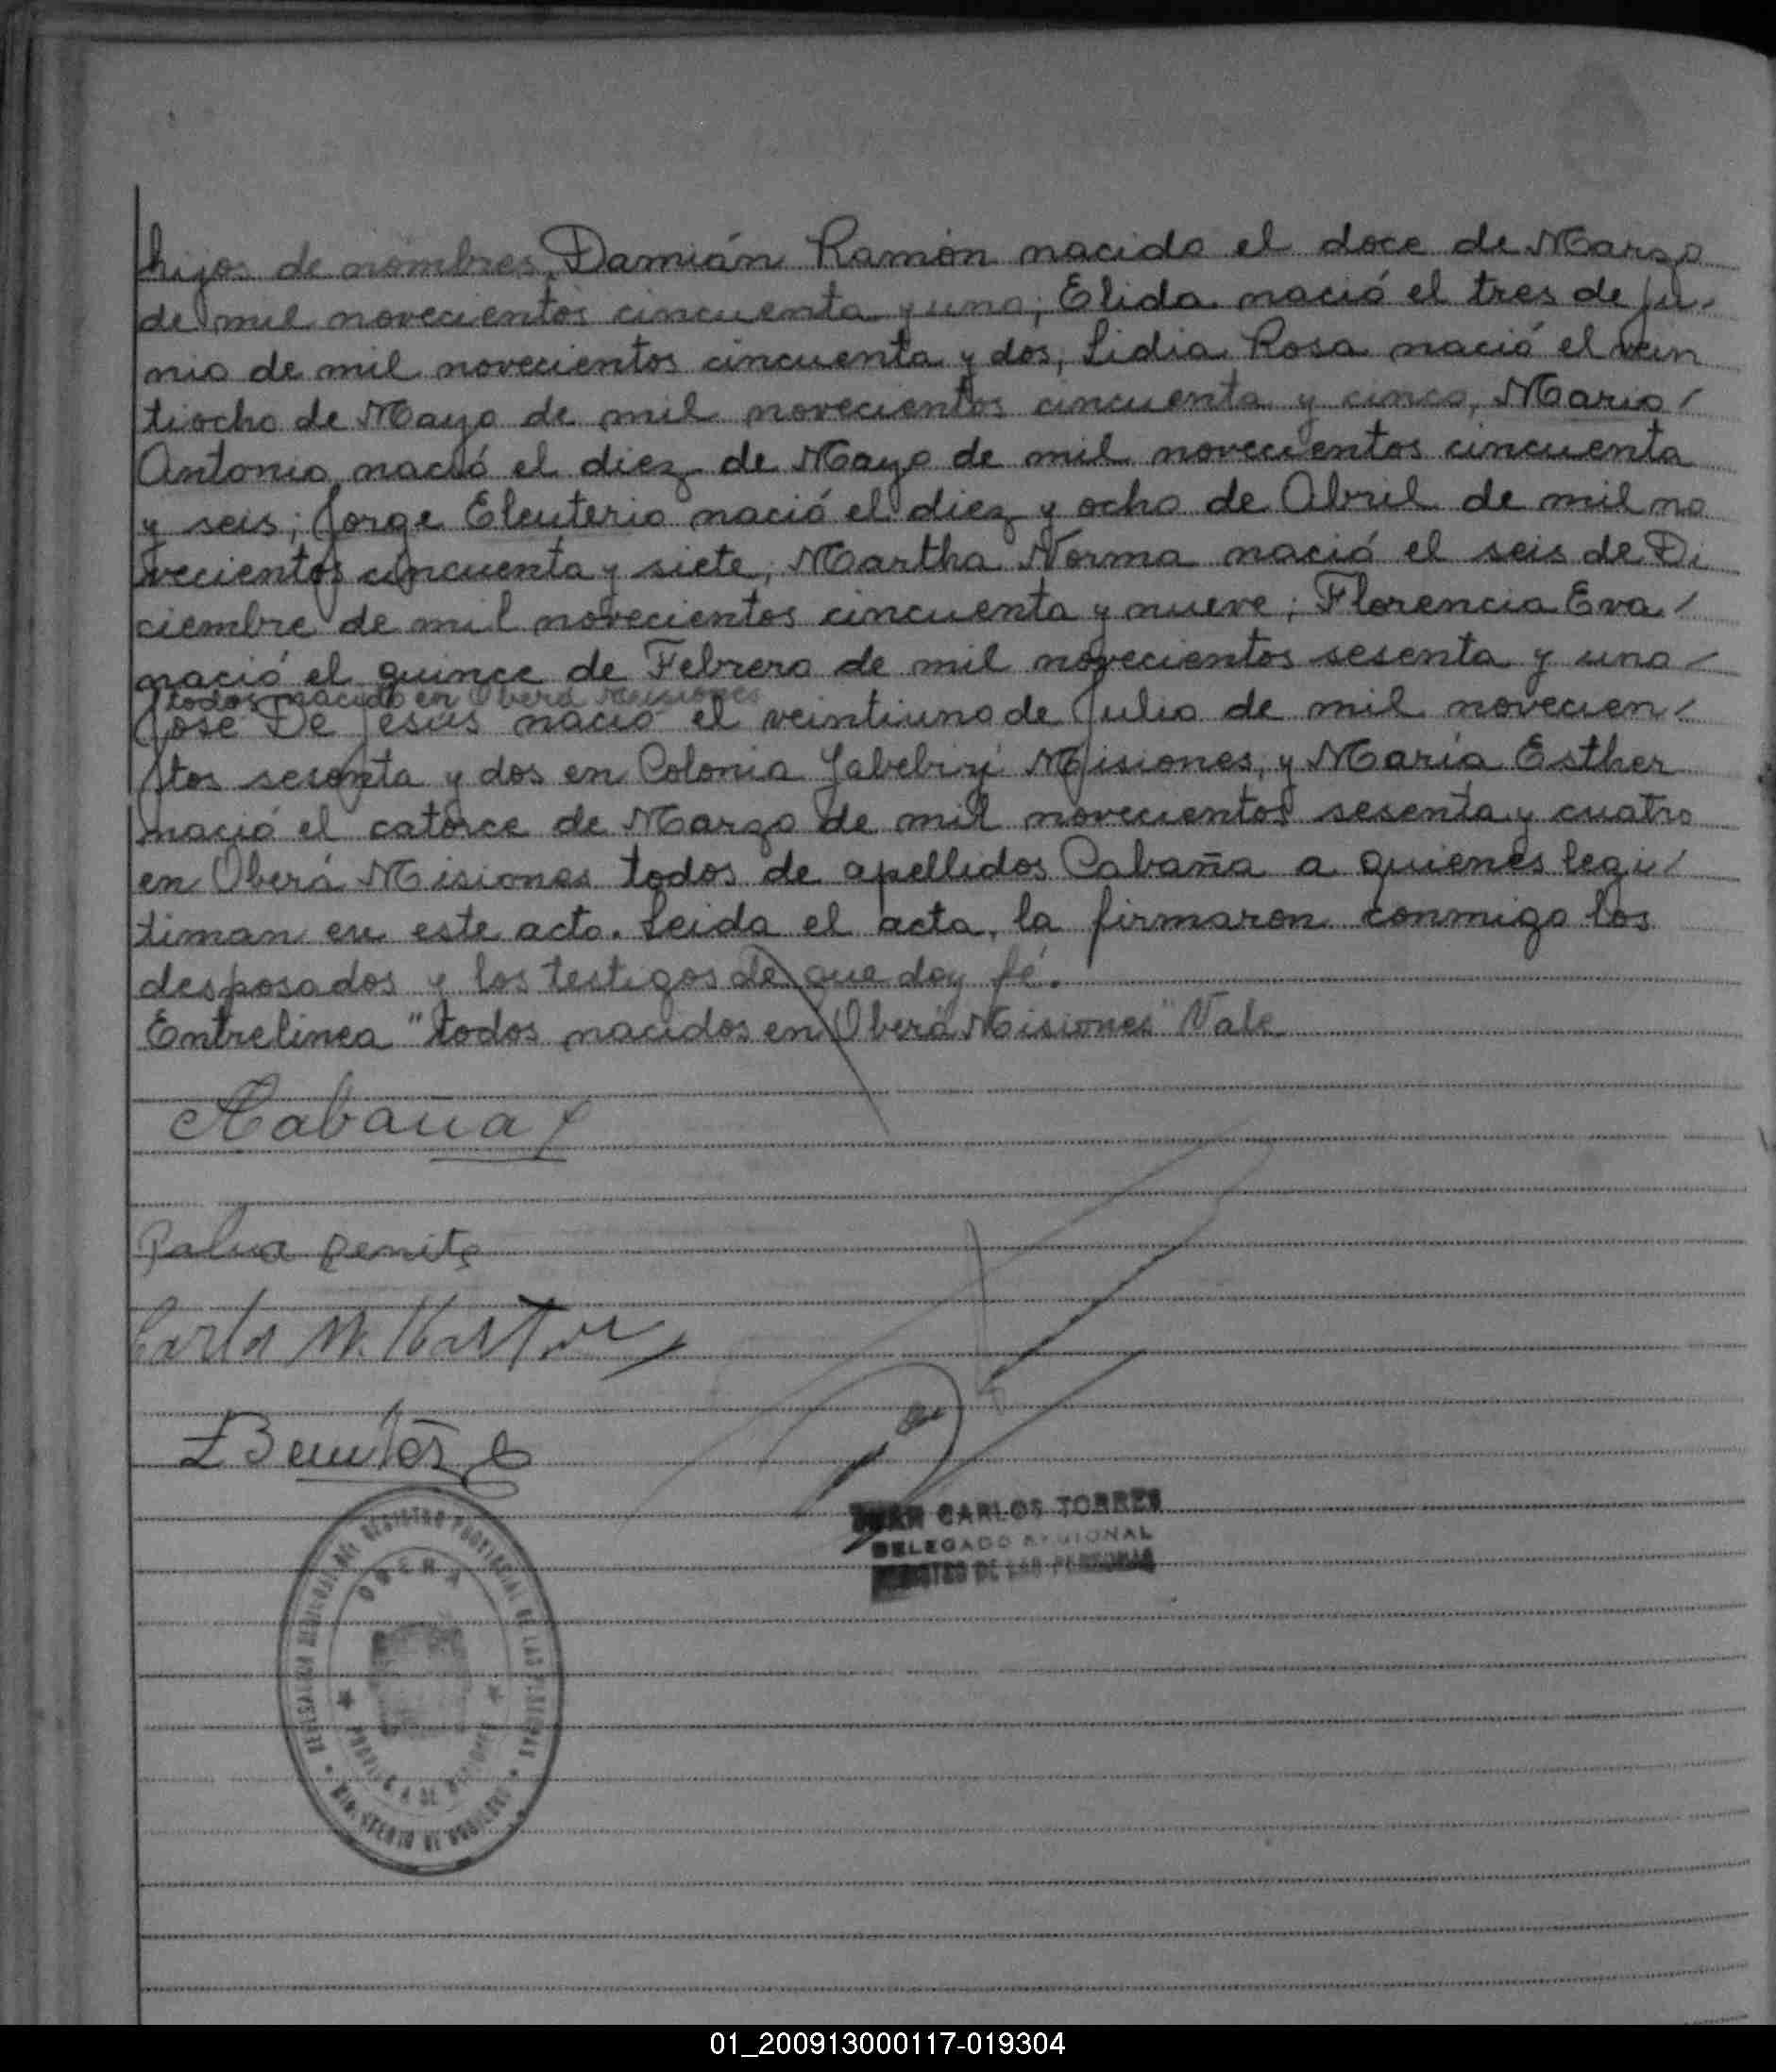 hijos de nombres, Damián Ramón nacido el doce de Marzo
de mil novecientos cincuenta y uno; Elida nació el tres de Ju-
nio de mil novecientos cincuenta y dos, Lidia Rosa nació el vein
tiocho de Mayo de mil novecientos cincuenta y cinco, Mario/
Antonio nació el diez de Mayo de mil novecientos cincuenta
y seis; Jorge Eleuterio nació el diez y ocho de Abril de mil no
vecientos cincuenta y siete, Martha Norma nació el seis de Di
ciembre de mil novecientos cincuenta y nueve; Florencia Eva/
nació el quince de Febrero de mil novecientos sesenta y uno/
todos nacido en Oberá Misiones
José De Jesús nació el veintiuno de Julio de mil novecien/
tos sesenta y dos en Colonia Yabebiry Misiones, y María Esther
nació el catorce de Marzo de mil novecientos sesenta y cuatro
en Oberá Misiones todos de apellidos Cabaña a quienes legi/
timan en este acto. Leida el acta, la firmaron conmigo los
desposados y los testigos de que doy fé.
Entrelinea "todos nacidos en Oberá Misiones" Vale
Cabaña
Benitez
JUAN CARLOS TORRES
DELEGADO REGIONAL
REGISTRO DE LAS PERSONAS
OBERA
01_200913000117-019304